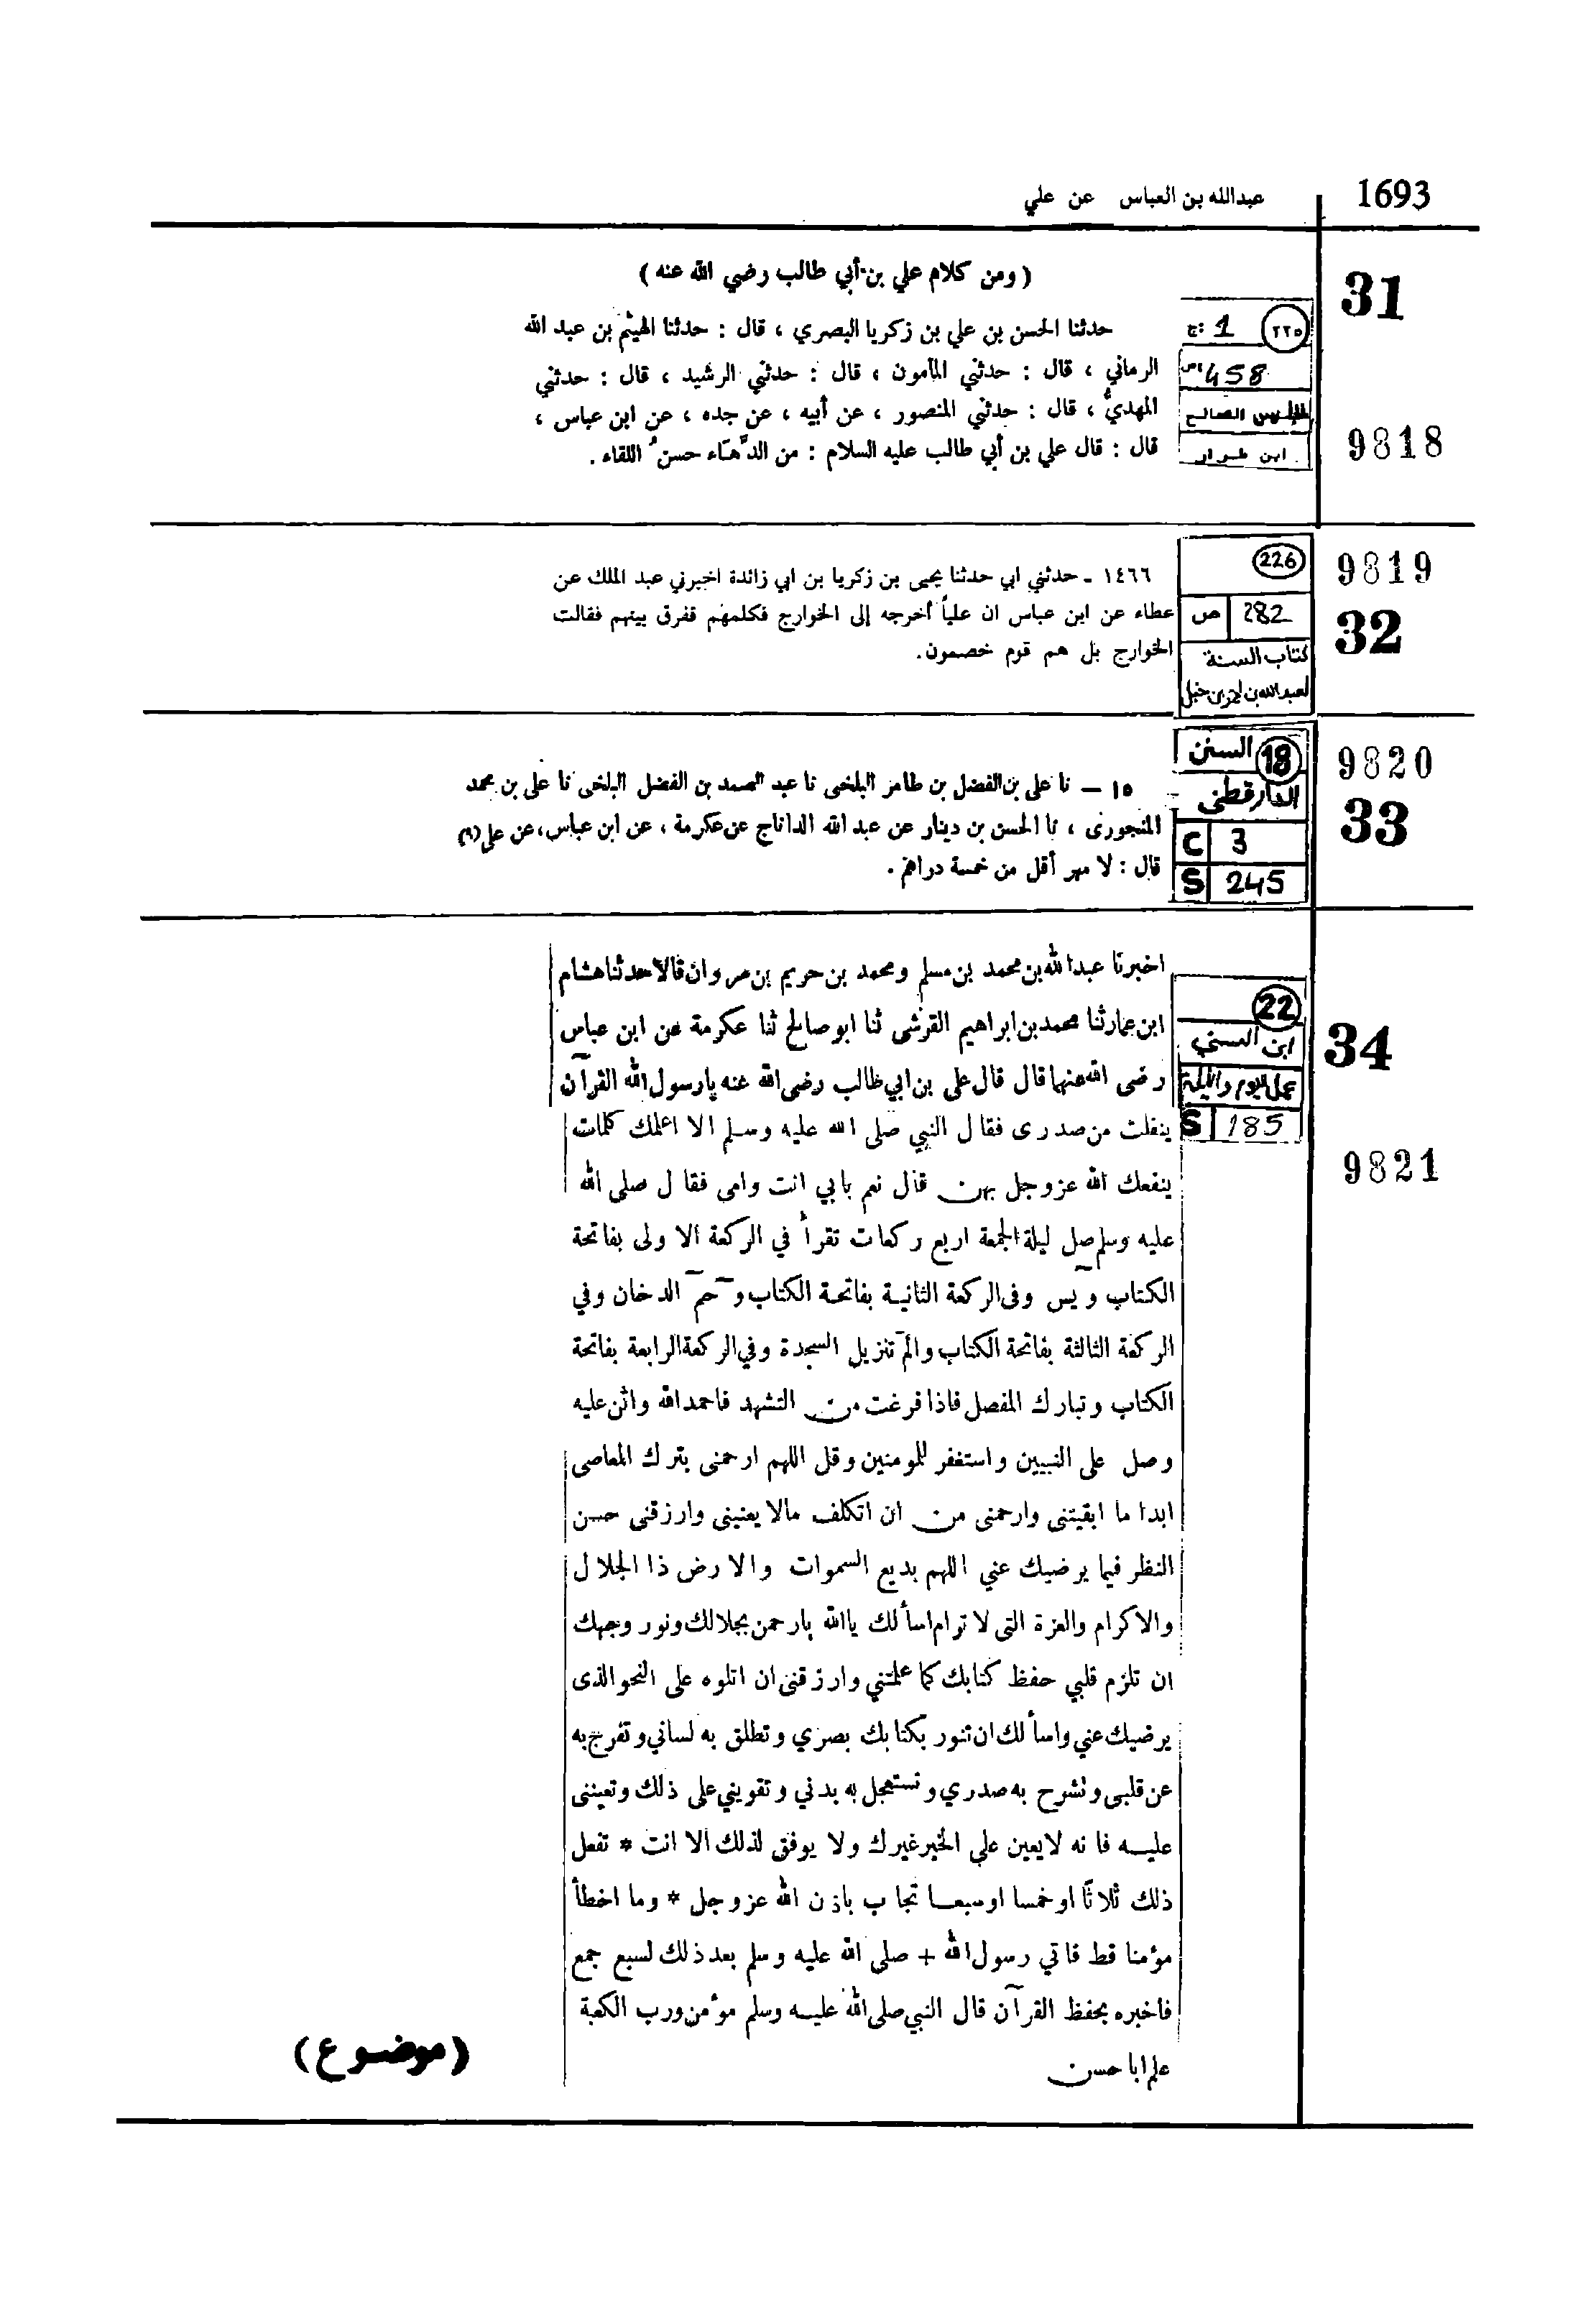 1693
عبدالله بن العباس عن علي
31
( ومن كلام علي بن أبي طالب رضي الله عنه )
٢٢٥
ج: 1
ص 458
الجليس الصالح
ابن طرار
9818
حدثنا الحسن بن علي بن زكريا البصري ، قال : حدثنا الهيثم بن عبد الله
الرماني ، قال : حدثني المأمون ، قال : حدثني الرشيد ، قال : حدثني
المهديُّ ، قال : حدثني المنصور ، عن أبيه ، عن جده ، عن ابن عباس ،
قال : قال علي بن أبي طالب عليه السلام : من الدَّهَاء حسنُ اللقاء .
9819
32
226
ص 282
كتاب السنة
لعبدالله بن احمد بن حنبل
١٤٦٦ - حدثني ابي حدثنا يحيى بن زكريا بن ابي زائدة اخبرني عبد الملك عن
عطاء عن ابن عباس ان علياً أخرجه إلى الخوارج فكلمهم ففرق بينهم فقالت
الخوارج بل هم قوم خصمون.
9820
33
18 السنن
الدارقطني
C 3
S 245
١٥ — نا على بن الفضل بن طاهر البلخى نا عبد الصمد بن الفضل البلخى نا على بن محمد
المنجورى ، نا الحسن بن دينار عن عبد الله الداناج عن عكرمة ، عن ابن عباس، عن على
قال : لا مهر أقل من خمسة دراهم .
34
22
ابن السني
عمل اليوم والليلة
S 185
9821
اخبرنا عبدالله بن محمد بن مسلم ومحمد بن حريم بن مروان قالا حدثنا هشام
ابن عمار ثنا محمد بن ابراهيم القرشى ثنا ابو صالح ثنا عكرمة عن ابن عباس
رضى الله عنهما قال قال على بن ابي طالب رضى الله عنه يارسول الله القرآن
ينفلت من صدرى فقال النبي صلى الله عليه وسلم الا اعلمك كلمات
ينفعك الله عزوجل بهن قال نعم بابي انت وامى فقال صلى الله
عليه وسلم صل ليلة الجمعة اربع ركعات تقرأ في الركعة الاولى بفاتحة
الكتاب ويٓس وفى الركعة الثانية بفاتحة الكتاب وحٓمٓ الدخان وفي
الركعة الثالثة بفاتحة الكتاب والمٓ تنزيل السجدة وفي الركعة الرابعة بفاتحة
الكتاب وتبارك المفصل فاذا فرغت من التشهد فاحمدالله واثن عليه
وصل على النبيين واستغفر للمومنين وقل اللهم ارحمنى بترك المعاصى
ابدا ما ابقيتنى وارحمنى من ان اتكلف مالا يعنينى وارزقنى حسن
النظر فيما يرضيك عني اللهم بديع السموات والارض ذا الجلال
والاكرام والعزة التى لاترام اسألك ياالله يارحمن بجلالك ونور وجهك
ان تلزم قلبي حفظ كتابك كما علمتني وارزقنى ان اتلوه على النحو الذى
يرضيك عني واسألك ان تنور بكتابك بصري وتطلق به لساني وتفرج به
عن قلبى وتشرح به صدري وتستعجل به بدني وتقويني على ذلك وتعيننى
عليه فانه لايعين علي الخير غيرك ولا يوفق لذلك الا انت * تفعل
ذلك ثلاثا اوخمسا اوسبعا تجاب باذن الله عزوجل * وما اخطأ
مؤمنا قط فاتي رسول الله + صلى الله عليه وسلم بعد ذلك لسبع جمع
فاخبره بحفظ القرآن قال النبي صلى الله عليه وسلم مؤمن ورب الكعبة
علم ابا حسن
(موضوع)